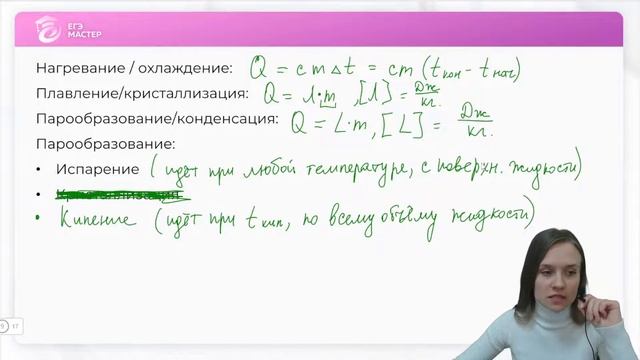 ЕГЭ
МАСТЕР
Нагревание / охлаждение: Q = c m Δt = c m (t кон - t нач)
Плавление/кристаллизация: Q = λ·m, [λ] = Дж/кг.
Парообразование/конденсация: Q = L·m, [L] = Дж/кг.
Парообразование:
• Испарение (идёт при любой температуре, с поверхн. жидкости)
• Кристаллизация
• Кипение (идёт при t кип, по всему объёму жидкости)
17